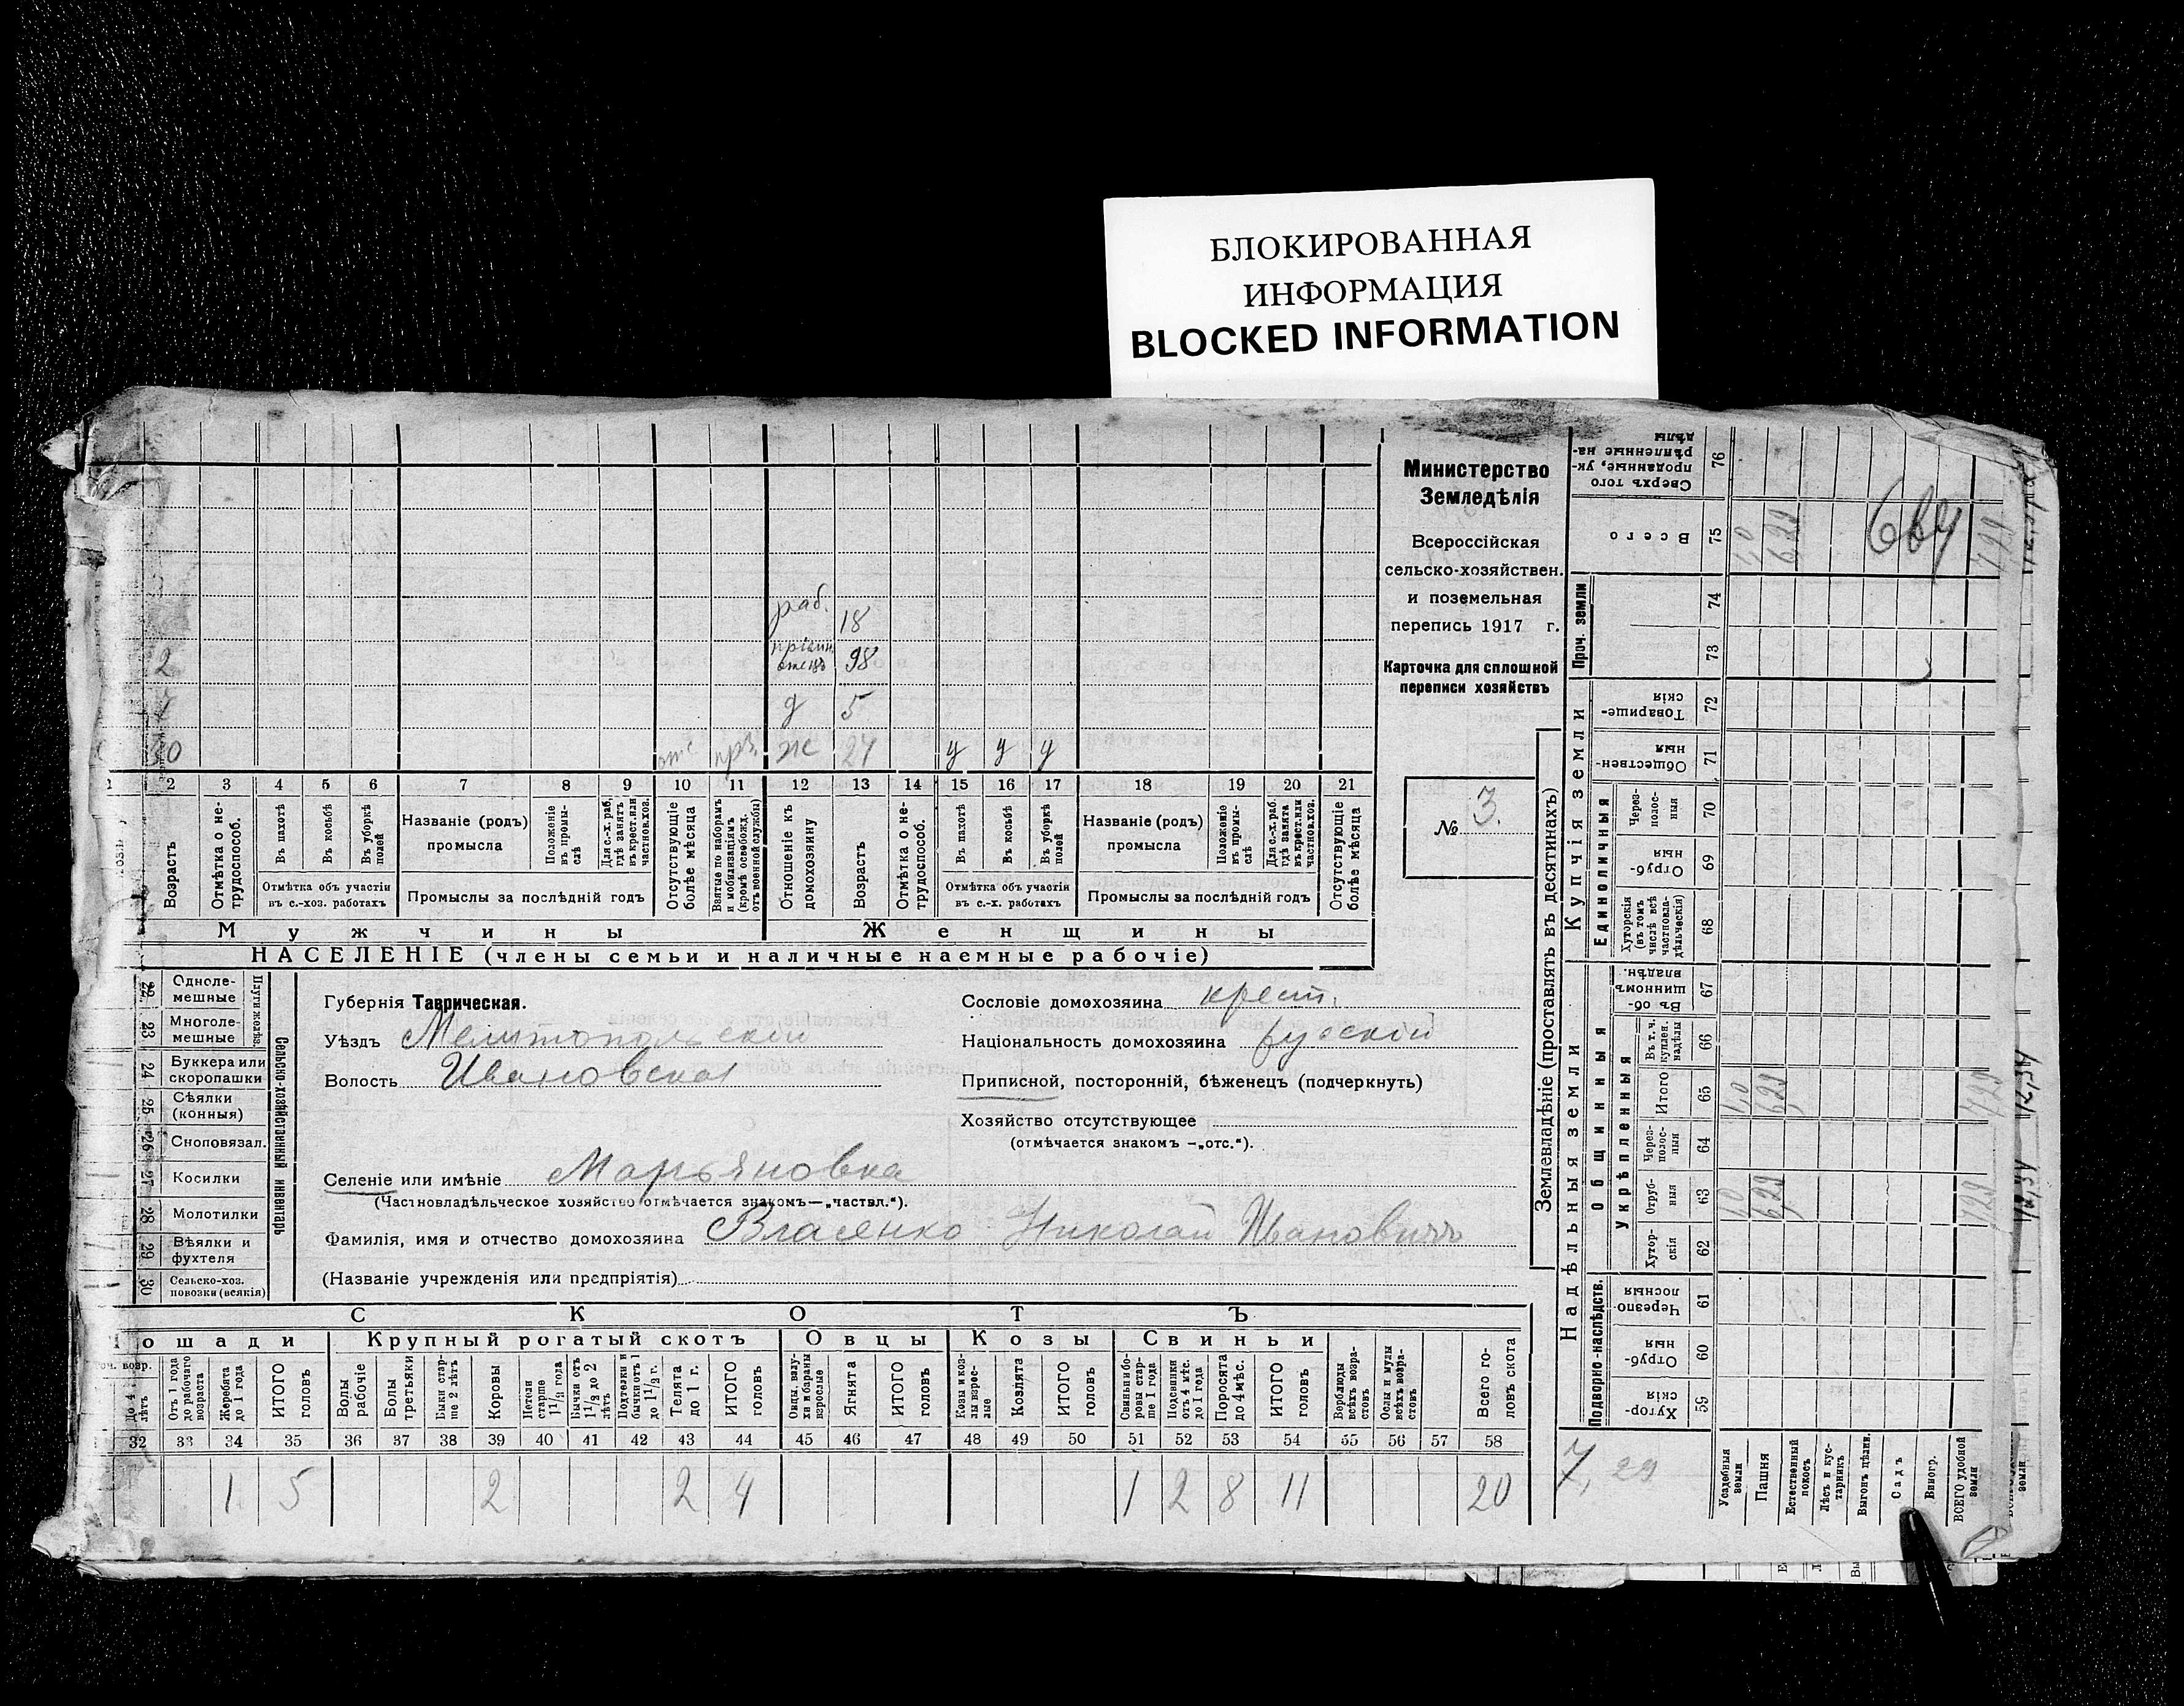 БЛОКИРОВАННАЯ
ИНФОРМАЦИЯ
BLOCKED INFORMATION
Министерство
Земледѣлія
Всероссійская
сельско-хозяйствен.
и поземельная
перепись 1917 г.
Карточка для сплошной
переписи хозяйствъ
№ 3.
раб. 18
2 98
д 5
30 отс ж 27 у у у
2 3 4 5 6 7 8 9 10 11 12 13 14 15 16 17 18 19 20 21
Возрастъ
Отмѣтка о не-
трудоспособ.
Въ пахотѣ
Въ косьбѣ
Въ уборкѣ
полей
Отмѣтка объ участіи
въ с.-хоз. работахъ
Названіе (родъ)
промысла
Положеніе
въ промы-
слѣ
Для с.-х. раб,
гдѣ занятъ
въ крест. или
частнов. хоз.
Промыслы за послѣдній годъ
Отсутствующіе
болѣе мѣсяца
Взятые по наборамъ
и мобилизаціямъ
(кромѣ освобожд.
отъ военной службы)
Отношеніе къ
домохозяину
Возрастъ
Отмѣтка о не-
трудоспособ.
Въ пахотѣ
Въ косьбѣ
Въ уборкѣ
полей
Отмѣтка объ участіи
въ с.-х. работахъ
Названіе (родъ)
промысла
Положеніе
въ промы-
слѣ
Для с.-х. раб.
гдѣ занята
въ крест. или
частнов. хоз.
Промыслы за послѣдній годъ
Отсутствующіе
болѣе мѣсяца
Мужчины Женщины
НАСЕЛЕНІЕ (члены семьи и наличные наемные рабочіе)
Сельско-хозяйственный инвентарь
22 Одноле-
мешные
23 Многоле-
мешные
24 Буккера или
скоропашки
25 Сѣялки
(конныя)
26 Сноповязал.
27 Косилки
28 Молотилки
29 Вѣялки и
фухтеля
30 Сельско-хоз.
повозки (всякія)
Губернія Таврическая.
Уѣздъ Мелитопольскій
Волость Ивановская
Селеніе или имѣніе Марьяновка
(Частновладѣльческое хозяйство отмѣчается знакомъ—„частвл.“).
Фамилія, имя и отчество домохозяина Власенко Николай Ивановичъ
(Названіе учрежденія или предпріятія)
Сословіе домохозяина крест.
Національность домохозяина русскій
Приписной, посторонній, бѣженецъ (подчеркнуть)
Хозяйство отсутствующее
(отмѣчается знакомъ —„отс.“).
СКОТЪ
Крупный рогатый скотъ Овцы Козы Свиньи
До 4
лѣтъ
Отъ 1 года
до рабочаго
возраста
Жеребята
до 1 года
ИТОГО
головъ
Волы
рабочіе
Волы
третьяки
Быки стар-
ше 2 лѣтъ
Коровы
Нетели
старше
1½ года
Бычки отъ
1½ до 2
лѣтъ
Подтелки и
бычки отъ 1
до 1½ г.
Телята
до 1 г.
ИТОГО
головъ
Овцы, валу-
хи и бараны
взрослые
Ягнята
ИТОГО
головъ
Козы и коз-
лы взрос-
лые
Козлята
ИТОГО
головъ
Свиньи и бо-
ровы стар-
ше 1 года
Подсвинки
отъ 4 мѣс.
до 1 года
Поросята
до 4 мѣс.
ИТОГО
головъ
Верблюды
всѣхъ возра-
стовъ
Ослы и мулы
всѣхъ возра-
стовъ
Всего го-
ловъ скота
32 33 34 35 36 37 38 39 40 41 42 43 44 45 46 47 48 49 50 51 52 53 54 55 56 57 58
1 5 2 2 4 1 2 8 11 20
Землевладѣніе (проставлять въ десятинахъ)
Сверхъ того
проданные, ук-
рѣпленные на-
дѣлы
76
Всего
75
Проч. земли
74
73
Купчія земли
Товарище-
скія
72
Обществен-
ныя
71
Единоличныя
Через-
полос-
ныя
70
Отруб-
ныя
69
Хуторскія
(въ томъ
числѣ всѣ
частновла-
дѣльческія)
68
Надѣльныя земли
Общинныя
Въ об-
щинномъ
владѣн.
67
Укрѣпленныя
Въ т. ч.
куплен.
надѣлы
66
Итого
65
1,0 6,29 7,29
Через-
полос-
ныя
64
Отруб-
ныя
63
1,0 6,29 7,29
Хутор-
скія
62
Подворно-наслѣдств.
Черезпо-
лосныя
61
Отруб-
ныя
60
Хутор-
скія
59
7,29
Усадебныя
земли
Пашня
Естественный
покосъ
Лѣсъ и кус-
тарникъ
Выгонъ цѣлин.
Садъ
Виногр.
ВСЕГО удобной
земли